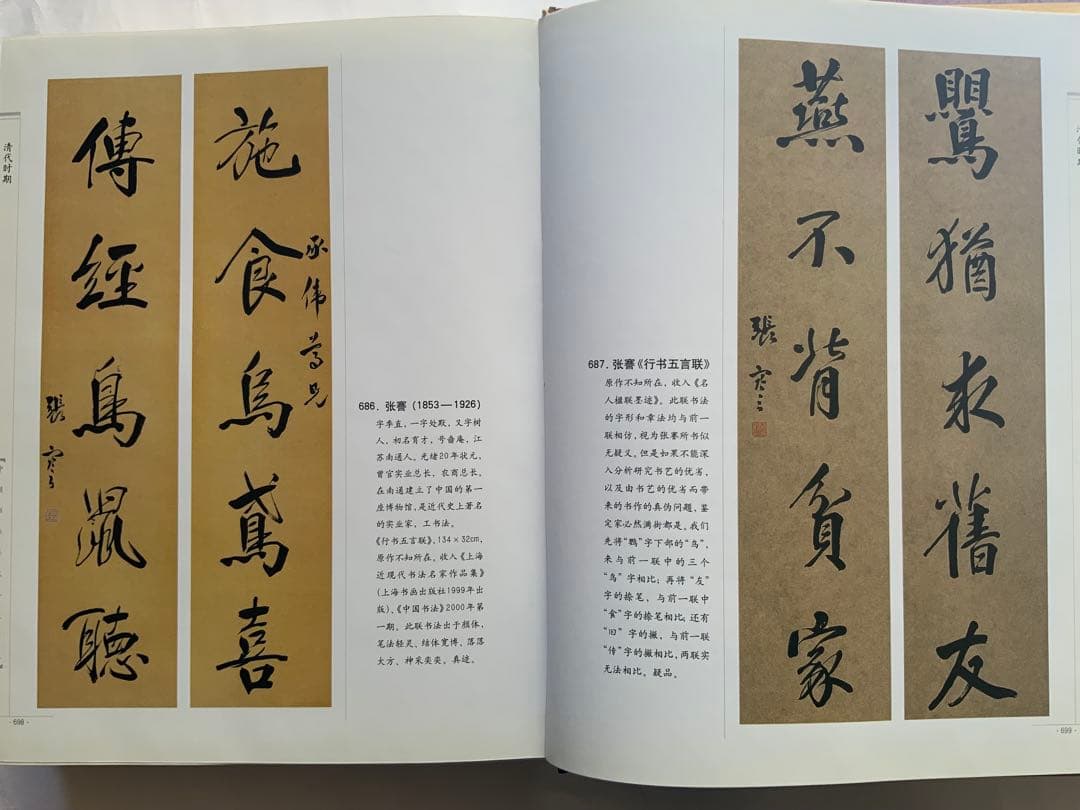 清代时期
施食烏鳶喜
承伟尊兄
傳經鳥鼠聽
張謇
686. 张謇（1853—1926）
字季直，一字处默，又字树
人，初名育才，号啬庵，江
苏南通人。光绪20年状元，
曾官实业总长，农商总长。
在南通建立了中国的第一
座博物馆，是近代史上著名
的实业家，工书法。
《行书五言联》，134×32cm，
原作不知所在，收入《上海
近现代书法名家作品集》
(上海书画出版社1999年出
版)、《中国书法》2000年第
一期。此联书法出于颜体，
笔法轻灵、结体宽博、落落
大方、神采奕奕。真迹。
·698·
687. 张謇《行书五言联》
原作不知所在，收入《名
人楹联墨迹》。此联书法
的字形和章法均与前一
联相仿，视为张謇所书似
无疑义。但是如果不能深
入分析研究书艺的优劣，
以及由书艺的优劣而带
来的书作的真伪问题，鉴
定家必然满街都是。我们
先将“鹦”字下部的“鸟”，
来与前一联中的三个
“鸟”字相比；再将“友”
字的捺笔，与前一联中
“食”字的捺笔相比；还有
“旧”字的撇，与前一联
“传”字的撇相比，两联实
无法相比。疑品。
鸎猶求舊友
燕不背貧家
張謇
·699·